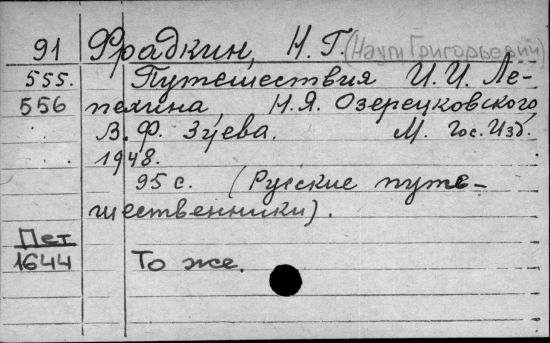 91 Фрадкин, Н. Г. (Наум Григорьевич)
555. Путешествия И. И. Ле-
556 пехина, Н. Я. Озерецковского,
В. Ф. Зуева. М. Гос. Изд.
1948.
95 с. (Русские путе-
шественники).
Пет
1644 То же.